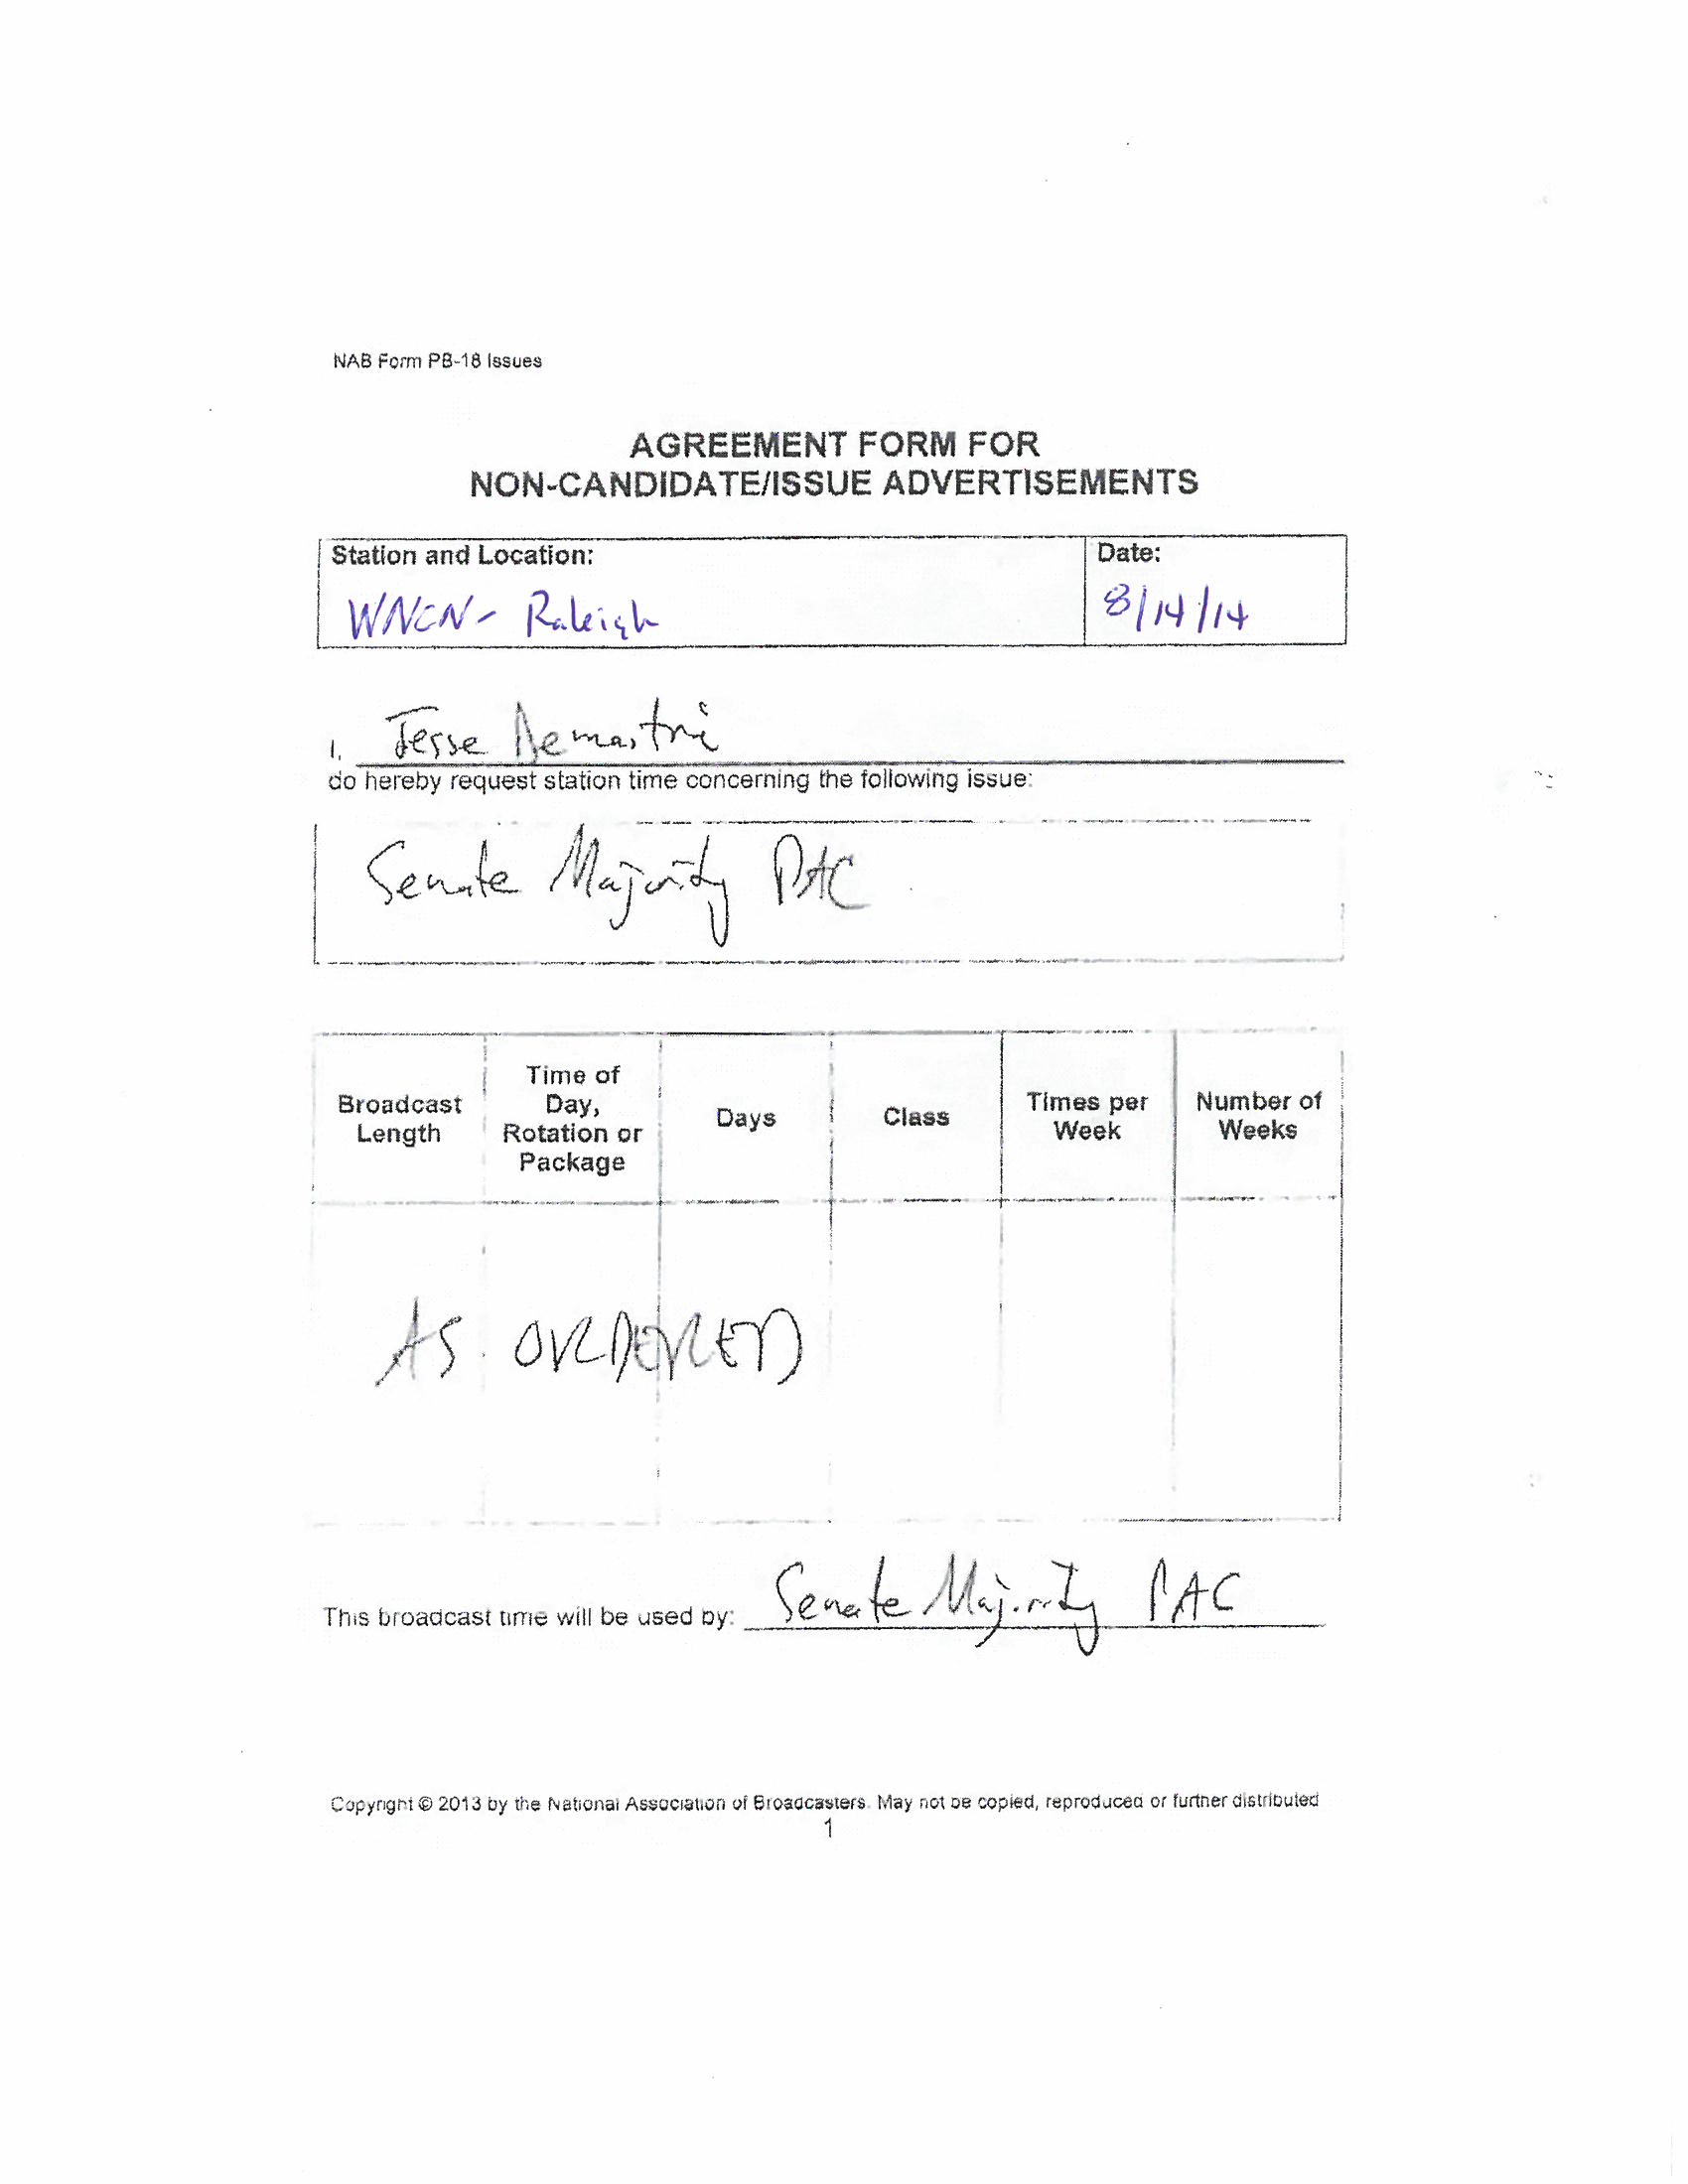 NAB Form PB-18 Issues
AGREEMENT FORM FOR
NON-CANDIDATE/ISSUE ADVERTISEMENTS
Station and Location:
Date:
WNCN- Raleigh
8/14/14
I, Jesse Demastrie
do hereby request station time concerning the following issue:
Senate Majority PAC
Broadcast Length
Time of Day, Rotation or Package
Days
Class
Times per Week
Number of Weeks
AS ORDERED
This broadcast time will be used by: Senate Majority PAC
Copyright © 2013 by the National Association of Broadcasters. May not be copied, reproduced or further distributed
1